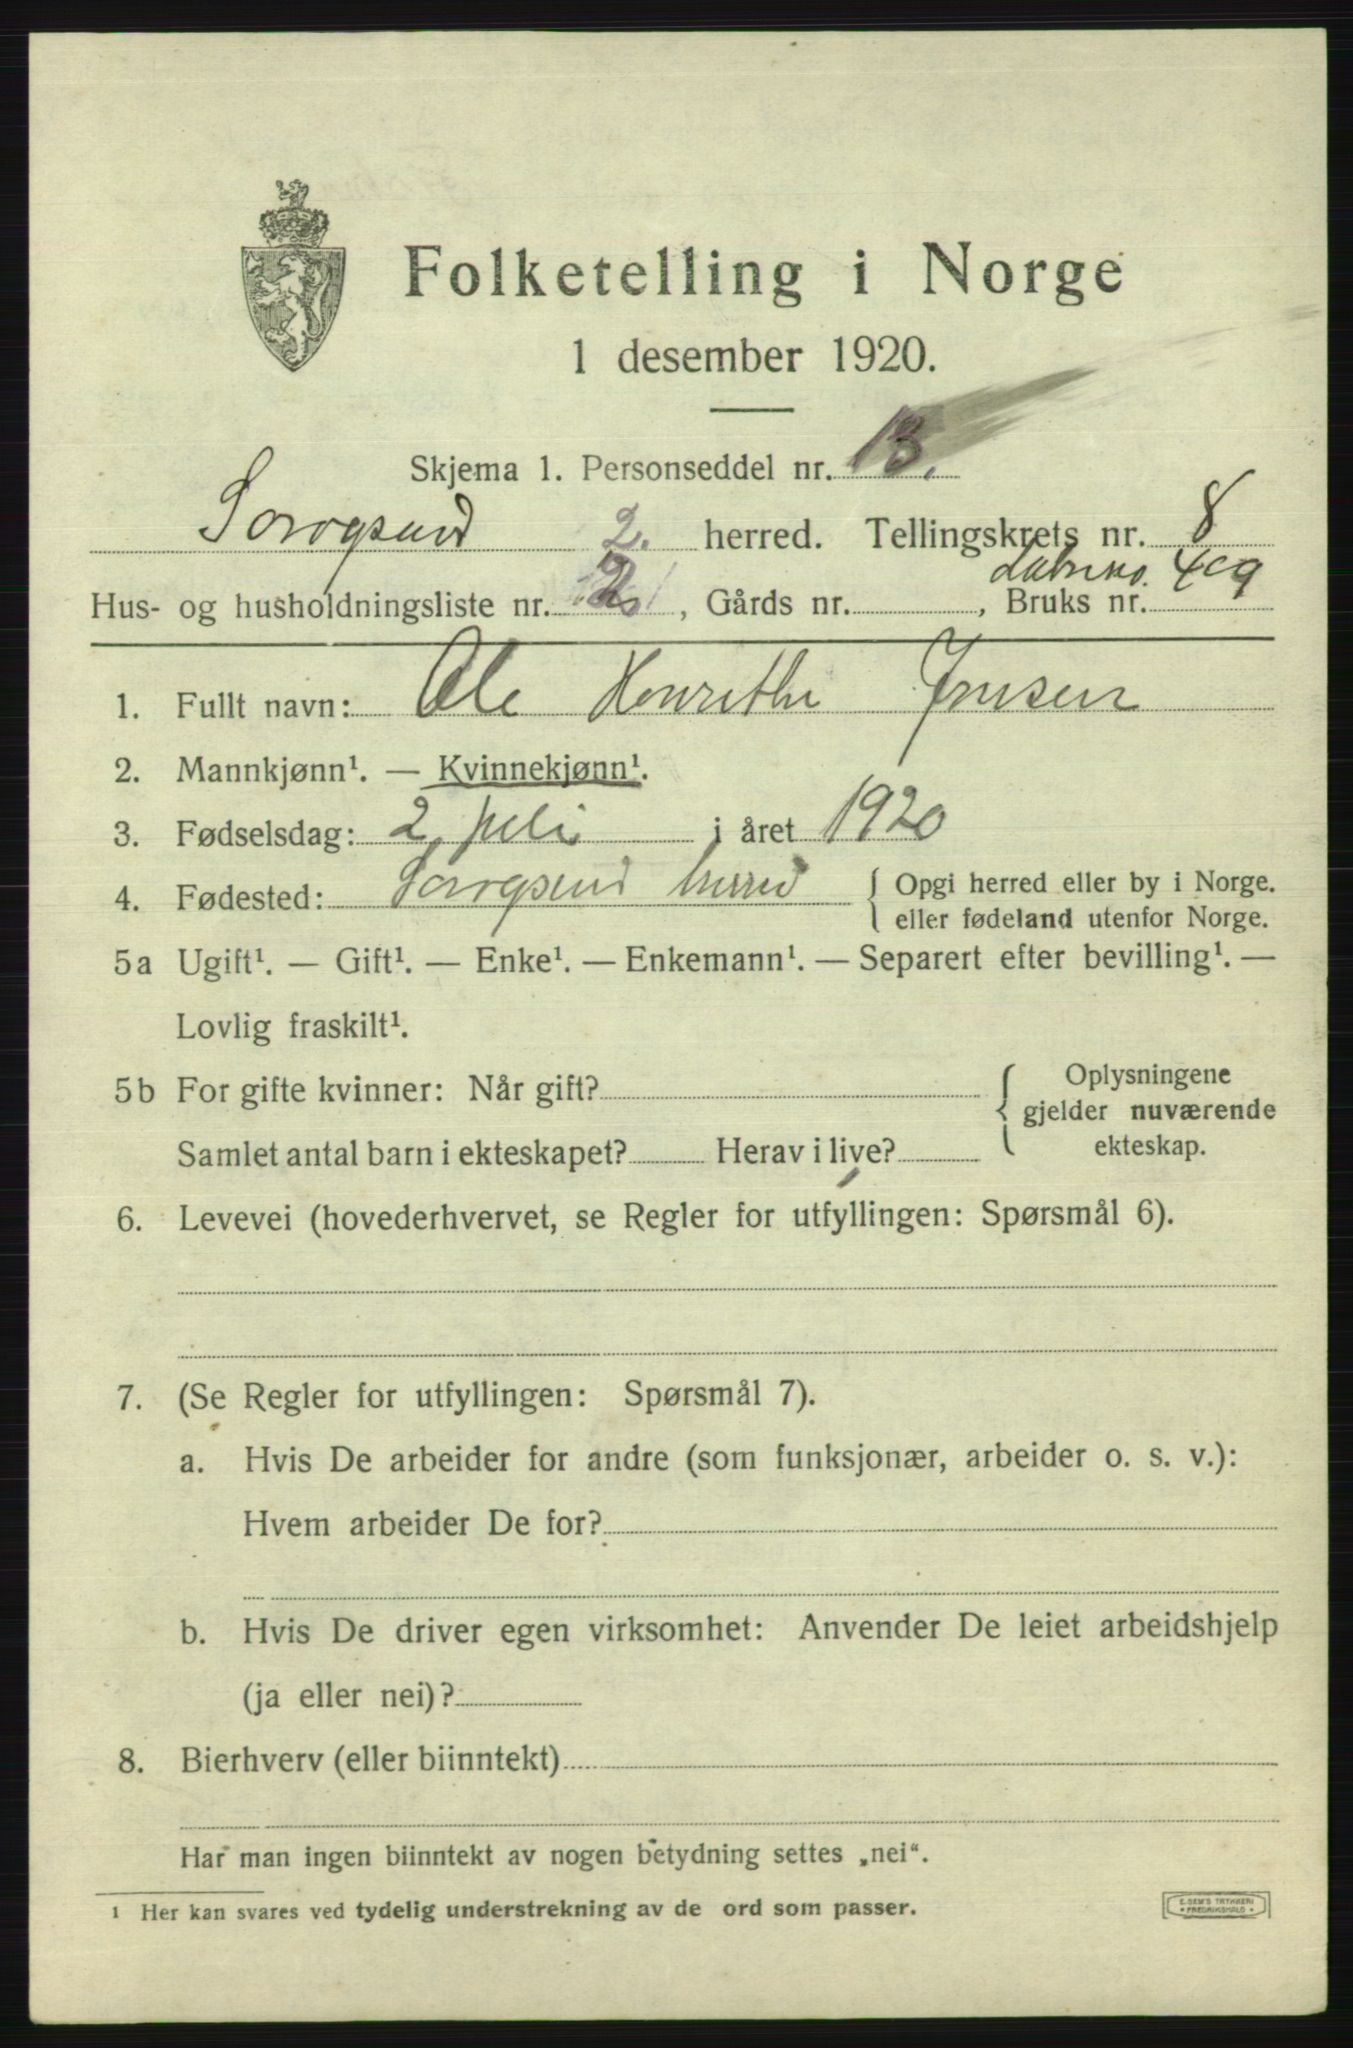 Folketelling i Norge
1 desember 1920.
Skjema 1. Personseddel nr. 13.
herred. Tellingskrets nr. 8
Hus- og husholdningsliste nr. 2, Gårds nr. , Bruks nr. 409
1. Fullt navn: Ole Jensen
2. Mannkjønn¹. — Kvinnekjønn¹.
3. Fødselsdag: 2 juli i året 1920
4. Fødested: herred { Opgi herred eller by i Norge.
eller fødeland utenfor Norge.
5a Ugift¹. — Gift¹. — Enke¹. — Enkemann¹. — Separert efter bevilling¹. —
Lovlig fraskilt¹.
5b For gifte kvinner: Når gift? { Oplysningene
gjelder nuværende
ekteskap.
Samlet antal barn i ekteskapet? Herav i live?
6. Levevei (hovederhvervet, se Regler for utfyllingen: Spørsmål 6).
7. (Se Regler for utfyllingen: Spørsmål 7).
a. Hvis De arbeider for andre (som funksjonær, arbeider o. s. v.):
Hvem arbeider De for?
b. Hvis De driver egen virksomhet: Anvender De leiet arbeidshjelp
(ja eller nei)?
8. Bierhverv (eller biinntekt)
Har man ingen biinntekt av nogen betydning settes „nei“.
¹ Her kan svares ved tydelig understrekning av de ord som passer.
E. SEM'S TRYKKERI
* FREDRIKSHALD *